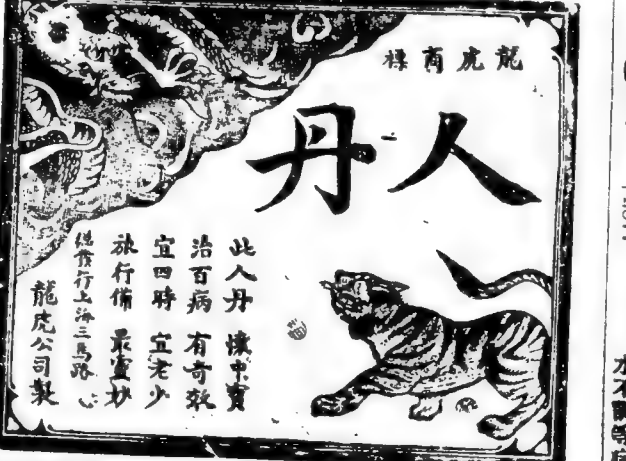 龍虎商標
人丹
此人丹 懷中寶
治百病 有奇效
宜四時 宜老少
旅行備 最靈妙
總發行上海三馬路
龍虎公司製
水不